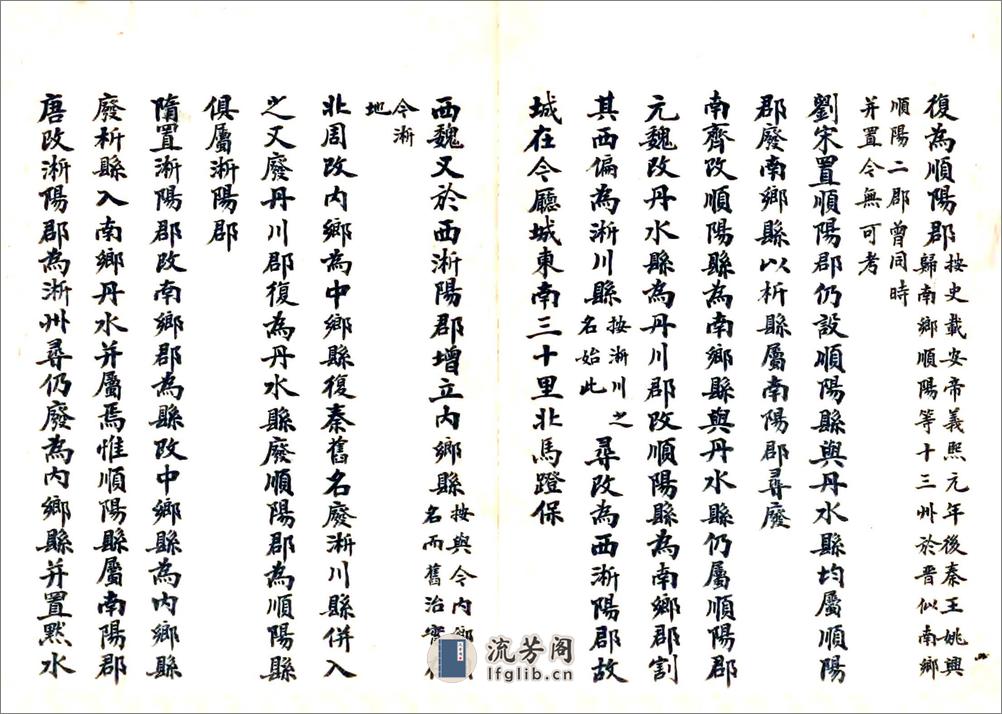 復為順陽郡按史載安帝義熙元年後秦王姚興歸南鄉順陽等十三州於晉似南鄉
順陽二郡曾同時并置今無可考
劉宋置順陽郡仍設順陽縣與丹水縣均屬順陽
郡廢南鄉縣以析縣屬南陽郡尋廢
南齊改順陽縣為南鄉縣與丹水縣仍屬順陽郡
元魏改丹水縣為丹川郡改順陽縣為南鄉郡割
其西偏為淅川縣按淅川之名始此尋改為西淅陽郡故
城在今廳城東南三十里北馬蹬保
西魏又於西淅陽郡增立內鄉縣按與今內鄉名而舊治
今淅地
北周改內鄉為中鄉縣復秦舊名廢淅川縣併入
之又廢丹川郡復為丹水縣廢順陽郡為順陽縣
俱屬淅陽郡
隋置淅陽郡改南鄉郡為縣改中鄉縣為內鄉縣
廢析縣入南鄉丹水并屬焉惟順陽縣屬南陽郡
唐改淅陽郡為淅州尋仍廢為內鄉縣并置默水
流芳阁
lfglib.cn